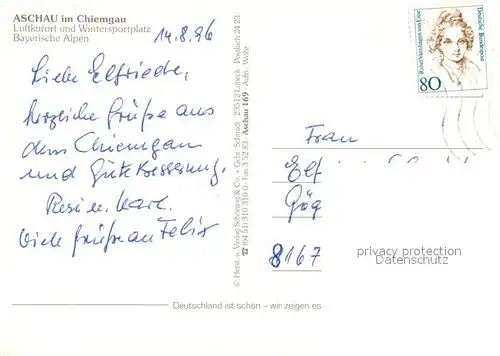 ASCHAU im Chiemgau
Luftkurort und Wintersportplatz
Bayerische Alpen
14.8.96
Liebe Elfriede,
herzliche Grüße aus
dem Chiemgau
und gute Besserung,
Resi u. Karl.
Viele Grüße an Felix
© Herst. u. Verlag Schöning & Co. + Gebr. Schmidt · 23512 Lübeck · Postfach 24 23
☎ (04 51) 310 310-0 · Fax 3 52 83 · Aschau 169 · Aufn.
Rahel Varnhagen von Ense
Deutsche Bundespost
80
Frau
Elf
Gög
8167
privacy protection
Datenschutz
Deutschland ist schön – wir zeigen es